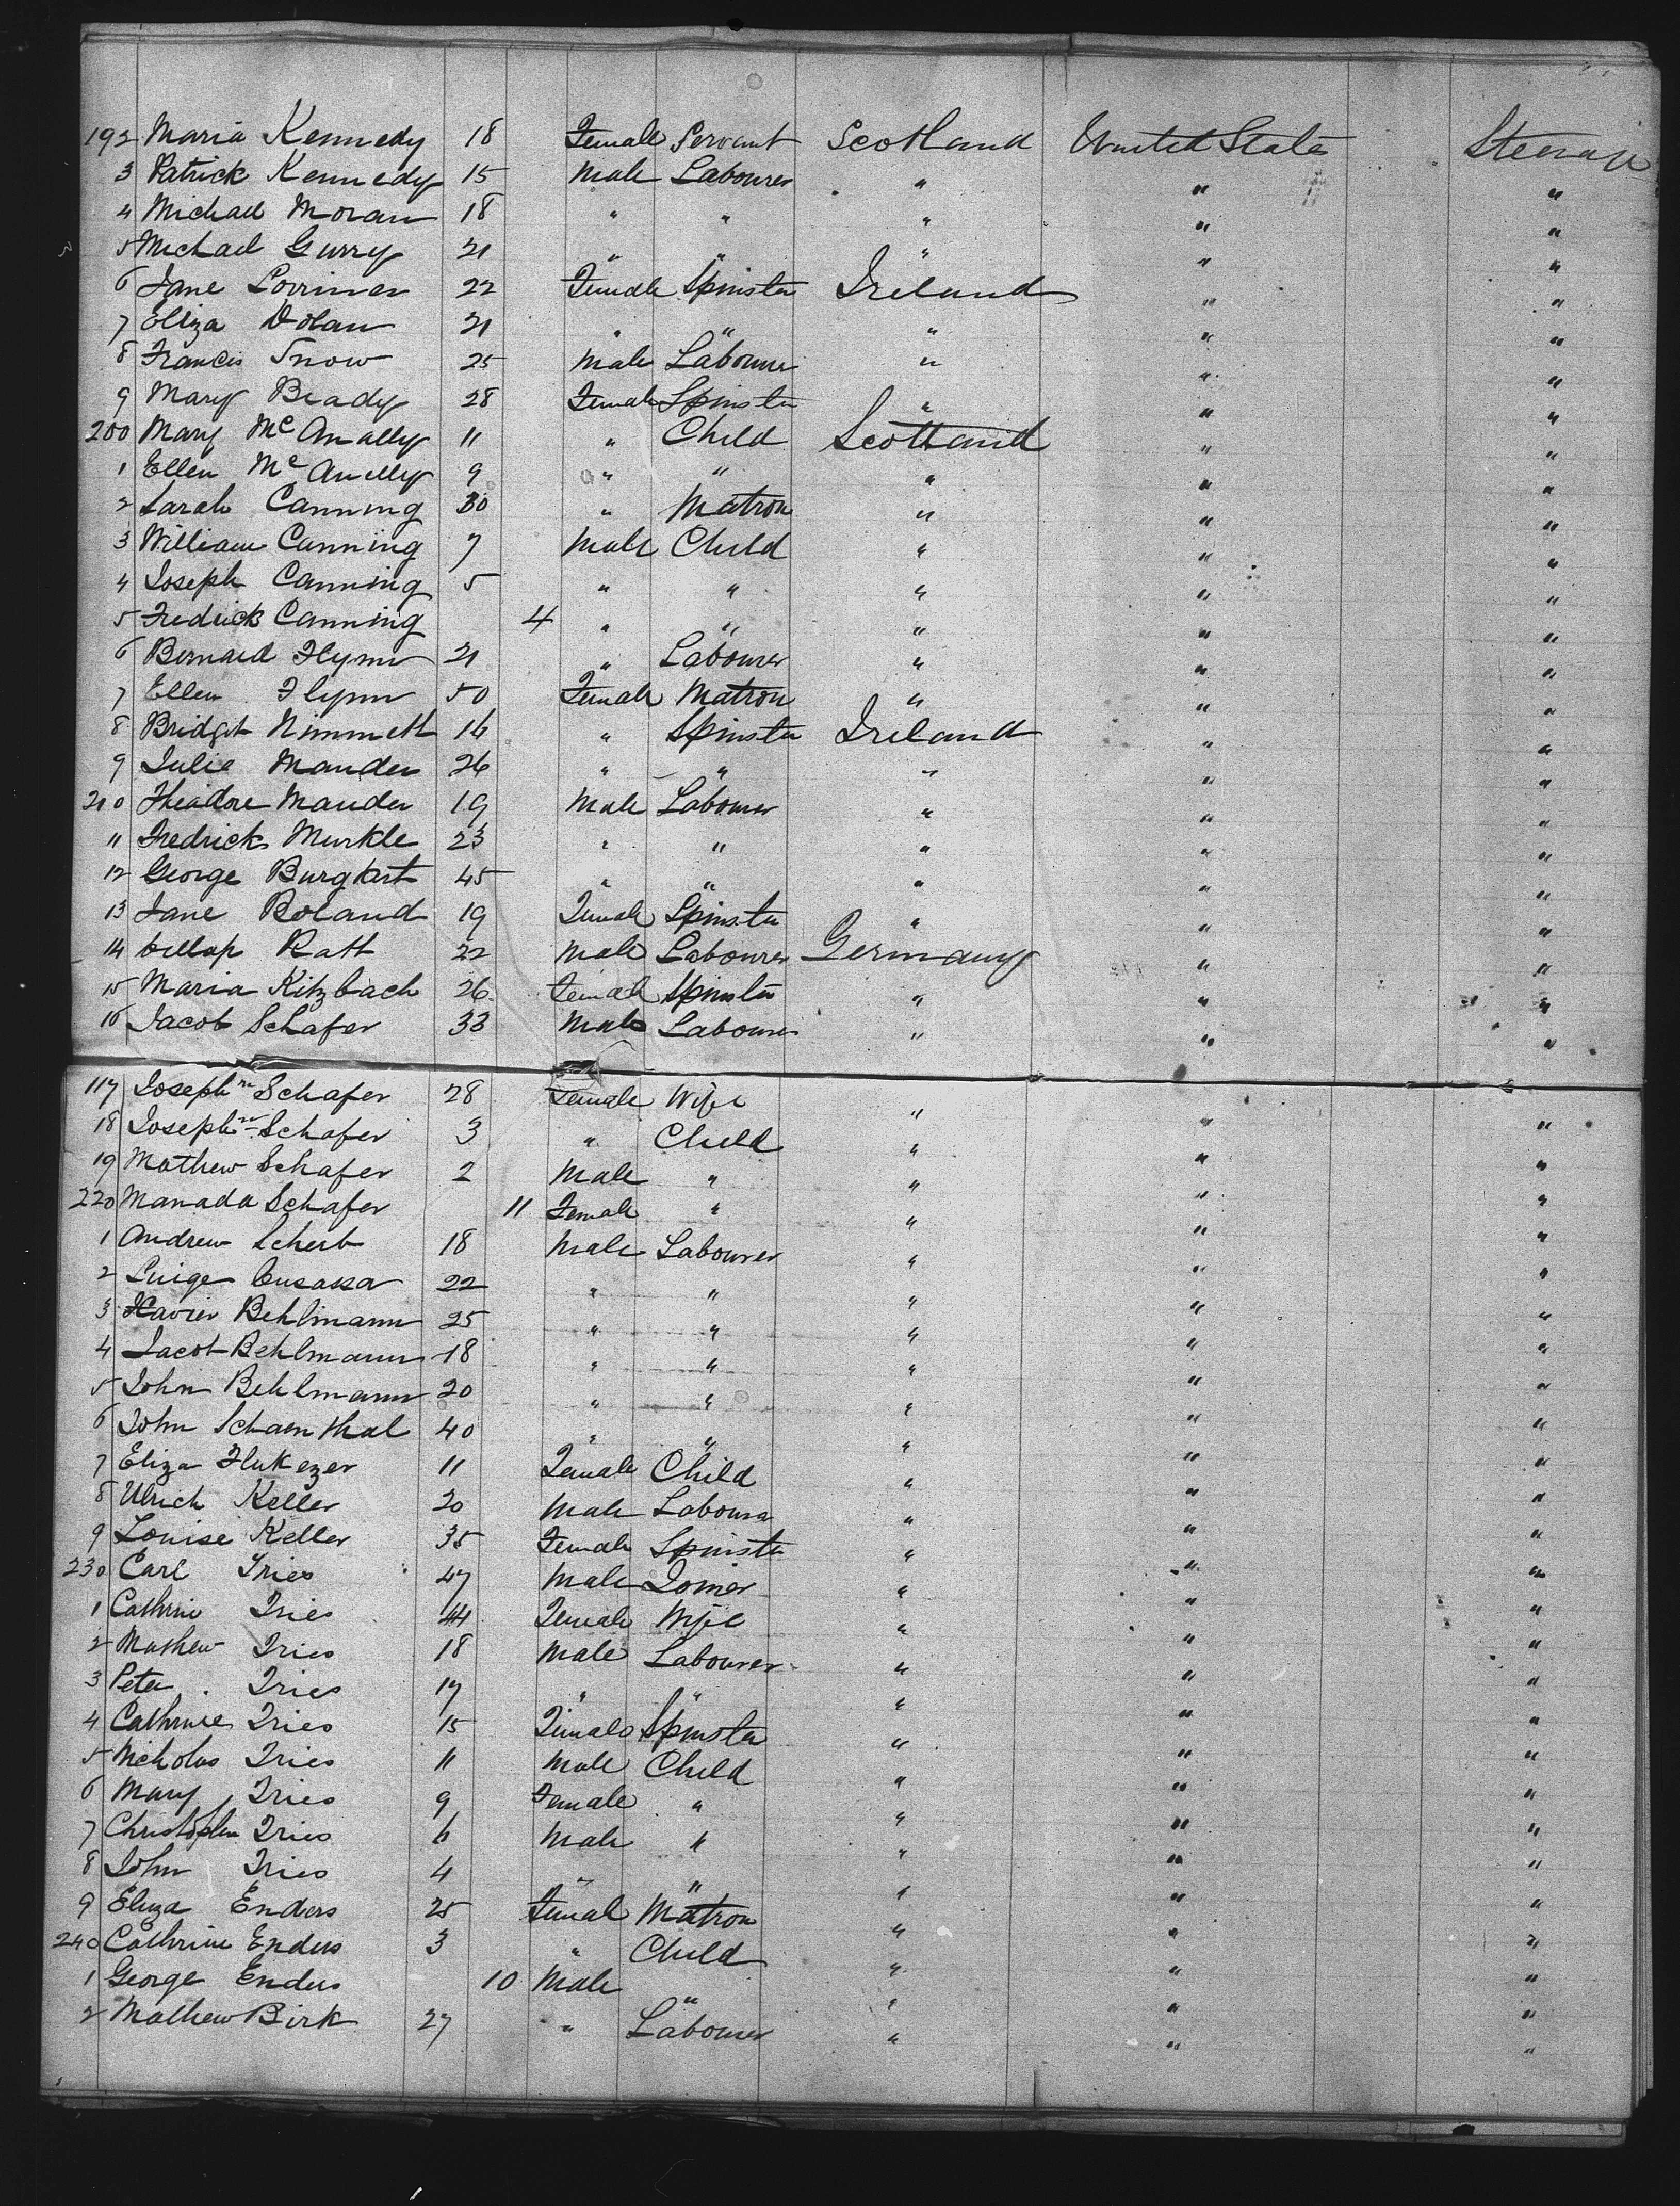 192 Maria Kennedy 18 Female Servant Scotland United States Steerage
3 Patrick Kennedy 15 Male Labourer " " "
4 Michael Moran 18 " " " " "
5 Michael Gurry 21 " " " " "
6 Jane Lorimer 22 Female Spinster Ireland " "
7 Eliza Dolan 21 " " " " "
8 Francis Snow 25 Male Labourer " " "
9 Mary Brady 28 Female Spinster " " "
200 Mary McAnally 11 " Child Scotland " "
1 Ellen McAnelly 9 " " " " "
2 Sarah Canning 30 " Matron " " "
3 William Canning 7 Male Child " " "
4 Joseph Canning 5 " " " " "
5 Fredrick Canning 4 " " " " "
6 Bernard Flynn 21 " Labourer " " "
7 Ellen Flynn 50 Female Matron " " "
8 Bridget Nimmett 16 " Spinster Ireland " "
9 Julie Mander 26 " " " " "
210 Theadore Mander 19 Male Labourer " " "
11 Fredrick Murkle 23 " " " " "
12 George Burgkart 45 " " " " "
13 Jane Roland 19 Female Spinster " " "
14 Ratt 22 Male Labourer Germany " "
15 Maria Kitzbach 26 Female Spinster " " "
16 Jacob Schafer 33 Male Labourer " " "
117 Josephne Schafer 28 Female Wife " " "
18 Josephne Schafer 3 " Child " " "
19 Mathew Schafer 2 Male " " " "
220 Manada Schafer 11 Female " " " "
1 Andrew Scherb 18 Male Labourer " " "
2 Luige Cusassa 22 " " " " "
3 Xavier Behlmann 25 " " " " "
4 Jacob Behlmann 18 " " " " "
5 John Behlmann 20 " " " " "
6 John Schaenthal 40 " " " " "
7 Eliza Flukezer 11 Female Child " " "
8 Ulrich Keller 20 Male Labourer " " "
9 Louise Keller 35 Female Spinster " " "
230 Carl Tries 47 Male Joiner " " "
1 Cathrin Tries 44 Female Wife " " "
2 Mathew Tries 18 Male Labourer " " "
3 Peter Tries 17 " " " " "
4 Cathrine Tries 15 Female Spinster " " "
5 Nicholas Tries 11 Male Child " " "
6 Mary Tries 9 Female " " " "
7 Christopher Tries 6 Male " " " "
8 John Tries 4 " " " " "
9 Eliza Enders 25 Female Matron " " "
240 Cathrine Enders 3 " Child " " "
1 George Enders 10 Male " " " "
2 Mathew Birk 27 " Labourer " " "